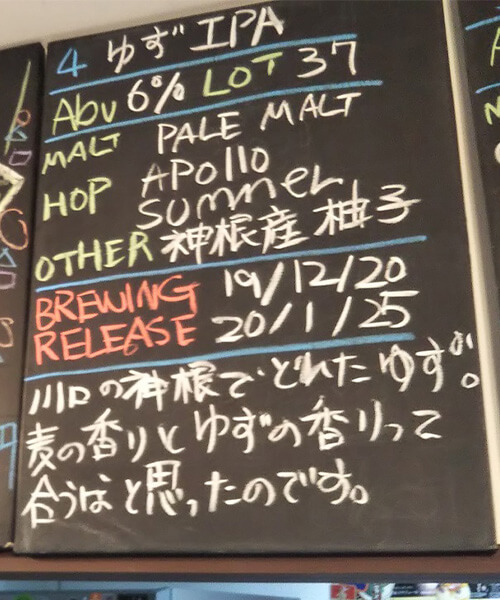 4 ゆず IPA
Abv 6% LOT 37
MALT PALE MALT
HOP APOllO
summer
OTHER 神根産 柚子
BREWING 19/12/20
RELEASE 20/1/25
川口の神根でとれたゆず。
麦の香りとゆずの香りって
合うなと思ったのです。